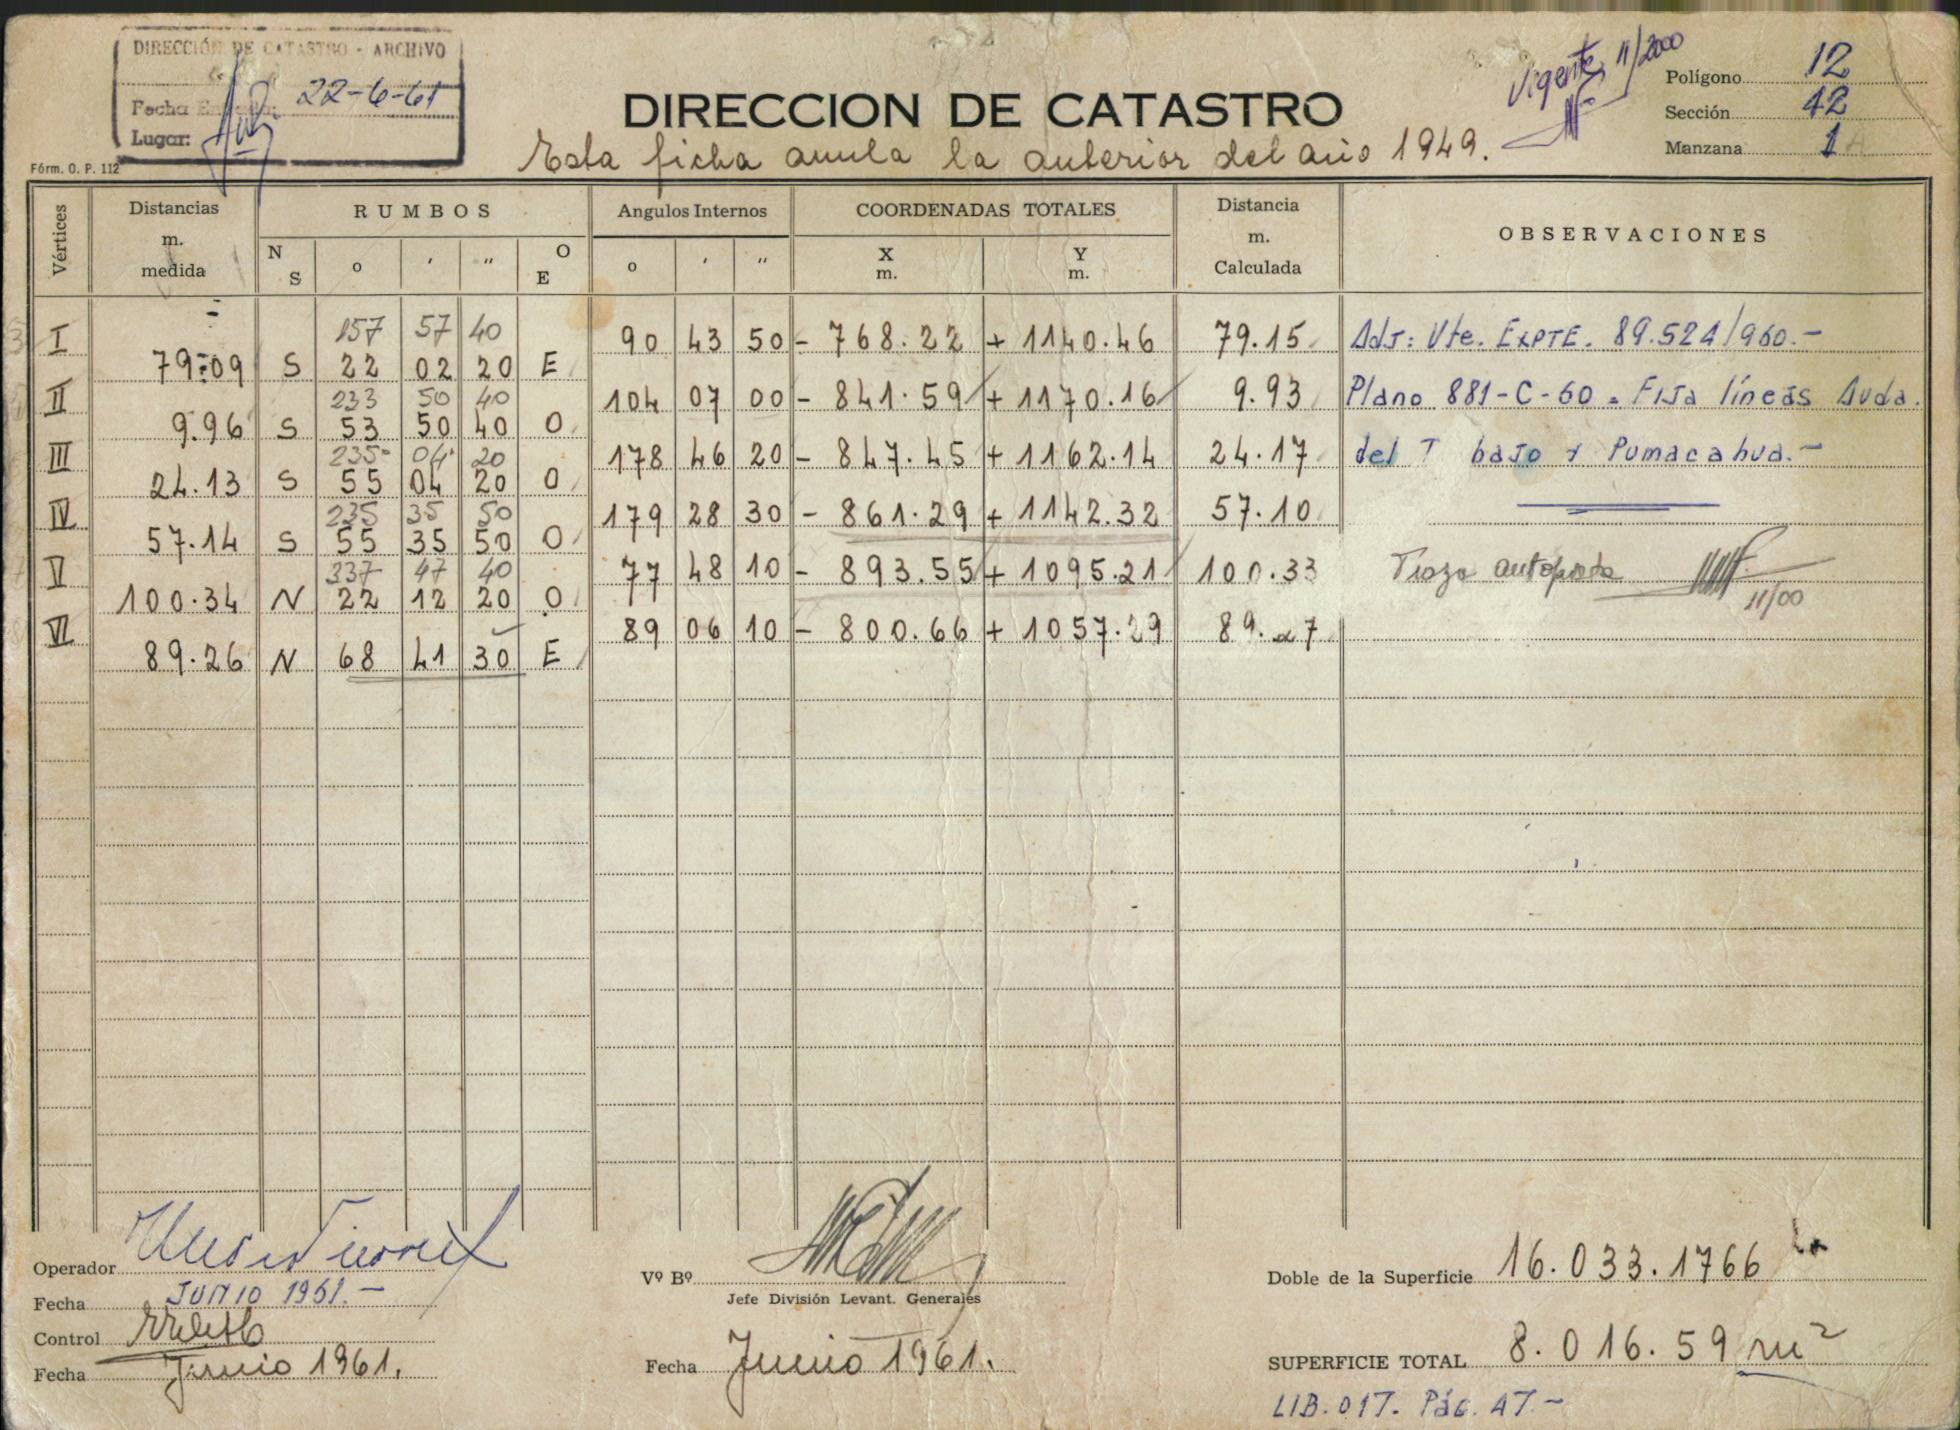 DIRECCIÓN DE CATASTRO - ARCHIVO
Fecha 22-6-61
Lugar:
Fórm. O. P. 112
DIRECCION DE CATASTRO
Esta ficha anula la anterior del año 1949.
Vigente 11/2000
Polígono 12
Sección 42
Manzana 1
Vértices
Distancias m. medida
RUMBOS
N S o ′ ″ O E
Angulos Internos
o ′ ″
COORDENADAS TOTALES
X m. Y m.
Distancia m. Calculada
OBSERVACIONES
157 57 40
I 90 43 50 - 768.22 + 1140.46 79.15 Adj: Vte. EXPTE. 89.524/960.-
79.09 S 22 02 20 E
233 50 40
II 104 07 00 - 841.59 + 1170.16 9.93 Plano 881-C-60. Fija líneas Avda.
9.96 S 53 50 40 O
235 04 20
III 178 46 20 - 847.45 + 1162.14 24.17 del T bajo y Pumacahua.-
24.13 S 55 04 20 O
235 35 50
IV 179 28 30 - 861.29 + 1142.32 57.10
57.14 S 55 35 50 O
337 47 40
V 77 48 10 - 893.55 + 1095.21 100.33
100.34 N 22 12 20 O
11/00
VI 89 06 10 - 800.66 + 1057.29 89.27
89.26 N 68 41 30 E
Operador
Fecha JUNIO 1961.-
Control
Fecha Junio 1961.
Vº Bº
Jefe División Levant. Generales
Fecha Junio 1961.
Doble de la Superficie 16.033.1766
SUPERFICIE TOTAL 8.016.59 m²
LIB. 017. Pág. 47.-